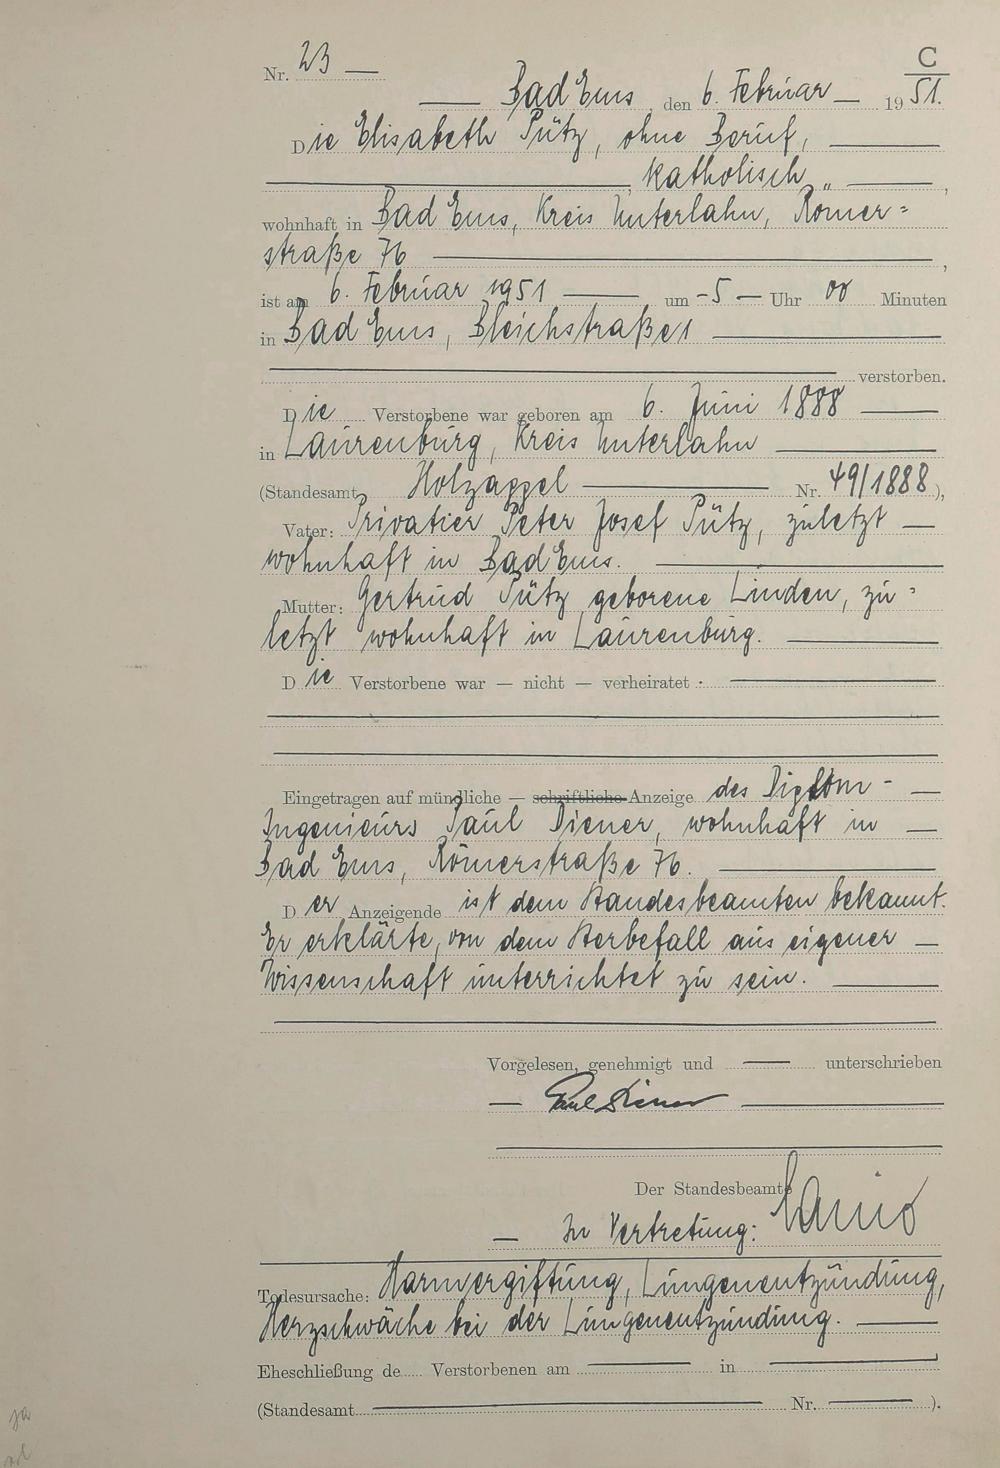 C
Nr. 23 —
— Bad Ems, den 6. Februar — 1951.
Die Elisabeth Pütz, ohne Beruf, —
— katholisch „ —,
wohnhaft in Bad Ems, Kreis Unterlahn, Römer=
straße 76 —,
ist am 6. Februar 1951 — um -5— Uhr 00 Minuten
in Bad Ems, Bleichstraße 1 —
— verstorben.
Die Verstorbene war geboren am 6. Juni 1888 —
in Laurenburg, Kreis Unterlahn —
(Standesamt Holzappel — Nr. 49/1888),
Vater: Privatier Peter Josef Pütz, zuletzt —
wohnhaft in Bad Ems. —
Mutter: Gertrud Pütz geborene Linden, zu=
letzt wohnhaft in Laurenburg. —
Die Verstorbene war — nicht — verheiratet . —
Eingetragen auf mündliche — schriftliche Anzeige des Diplom- —
Ingenieurs Paul Diener, wohnhaft in —
Bad Ems, Römerstraße 76. —
Der Anzeigende ist dem Standesbeamten bekannt.
Er erklärte, von dem Sterbefall aus eigener —
Wissenschaft unterrichtet zu sein. —
Vorgelesen, genehmigt und — unterschrieben
— Paul Diener —
Der Standesbeamte
— In Vertretung:
Todesursache: Harnvergiftung, Lungenentzündung,
Herzschwäche bei der Lungenentzündung. —
Eheschließung de..... Verstorbenen am — in —
(Standesamt — Nr. — ).
ja